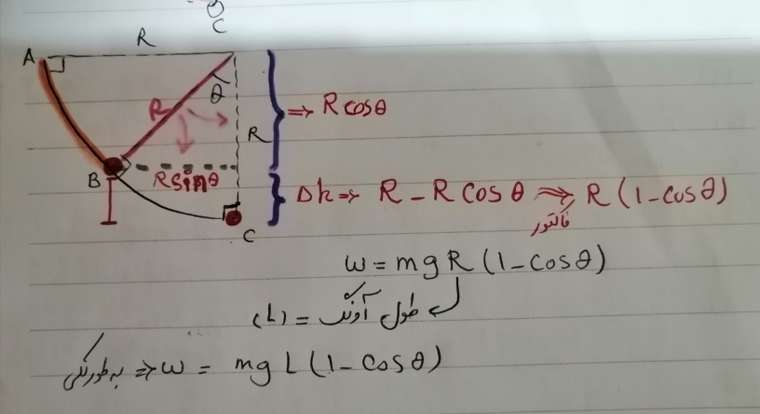 C
R
A
θ
R
R
⇒ R cosθ
B
R sinθ
Δh ⇒ R - R cosθ ⇒ R (1-cosθ)
فاکتور
C
W = mg R (1-cosθ)
طول آونگ = (L)
به طور کلی ⇒ W = mg L (1-cosθ)